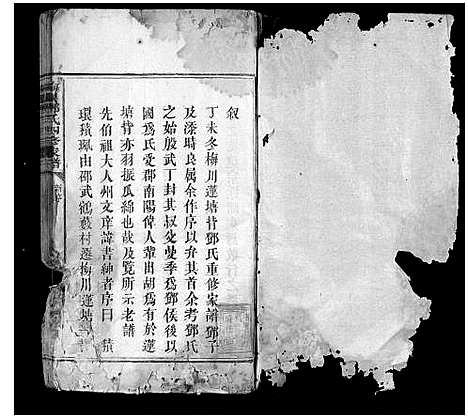 叙
丁未冬梅川蓬塘背鄧氏重修家譜鄧子
及溱時良属余作序以弁其首余考鄧氏
之始殷武丁封其叔父曼季爲鄧侯後以
國爲氏爰郡南陽偉人輩出胡爲有於蓬
塘背亦羽振瓜綿也哉及覽所示老譜
先伯祖大人州文庠諱書紳者序曰 積
環積珮由邵武 村遷梅川蓬塘